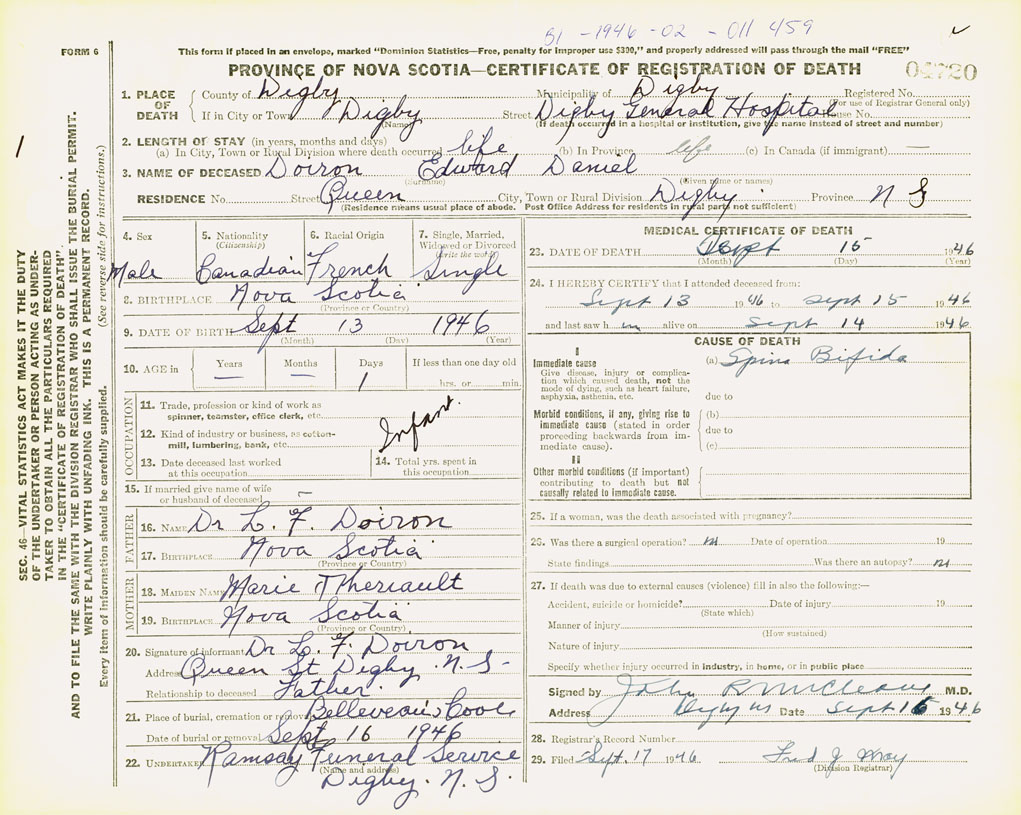 B1 - 1946 - 02 - 011 459
FORM 6
This form if placed in an envelope, marked "Dominion Statistics—Free, penalty for improper use $300," and properly addressed will pass through the mail "FREE"
PROVINCE OF NOVA SCOTIA—CERTIFICATE OF REGISTRATION OF DEATH
04720
1. PLACE OF DEATH
County of Digby Municipality of Digby Registered No.
(For use of Registrar General only)
If in City or Town Digby Street Digby General Hospital House No.
(Name) (If death occurred in a hospital or institution, give the name instead of street and number)
2. LENGTH OF STAY (in years, months and days)
(a) In City, Town or Rural Division where death occurred life (b) In Province life (c) In Canada (if immigrant) —
3. NAME OF DECEASED Doiron Edward Daniel
(Surname) (Given name or names)
RESIDENCE No. Street Queen City, Town or Rural Division Digby Province N S
(Residence means usual place of abode. Post Office Address for residents in rural parts not sufficient)
4. Sex
Male
5. Nationality (Citizenship)
Canadian
6. Racial Origin
French
7. Single, Married, Widowed or Divorced (write the word)
Single
8. BIRTHPLACE Nova Scotia
(Province or Country)
9. DATE OF BIRTH Sept 13 1946
(Month) (Day) (Year)
10. AGE in Years — Months — Days 1 If less than one day old
hrs. or min.
OCCUPATION
11. Trade, profession or kind of work as spinner, teamster, office clerk, etc.
Infant
12. Kind of industry or business, as cotton-mill, lumbering, bank, etc.
13. Date deceased last worked at this occupation
14. Total yrs. spent in this occupation
15. If married give name of wife or husband of deceased —
FATHER
16. NAME Dr L. F. Doiron
17. BIRTHPLACE Nova Scotia
(Province or Country)
MOTHER
18. MAIDEN NAME Marie Theriault
19. BIRTHPLACE Nova Scotia
(Province or Country)
20. Signature of informant Dr L. F. Doiron
Address Queen St Digby. N. S-
Relationship to deceased Father.
21. Place of burial, cremation or removal Belleveau's Cove
Date of burial or removal Sept 16 1946
22. UNDERTAKER Ramsay Funeral Service
(Name and address)
Digby. N. S.
MEDICAL CERTIFICATE OF DEATH
23. DATE OF DEATH Sept 15 1946
(Month) (Day) (Year)
24. I HEREBY CERTIFY that I attended deceased from:
Sept 13 1946 to Sept 15 1946
and last saw h im alive on Sept 14 1946.
CAUSE OF DEATH
I
Immediate cause (a) Spina Bifida
Give disease, injury or complication which caused death, not the mode of dying, such as heart failure, asphyxia, asthenia, etc.
due to
Morbid conditions, if any, giving rise to immediate cause (stated in order proceeding backwards from immediate cause).
(b)
due to
(c)
II
Other morbid conditions (if important) contributing to death but not causally related to immediate cause.
25. If a woman, was the death associated with pregnancy?
26. Was there a surgical operation? Date of operation 19
State findings Was there an autopsy?
27. If death was due to external causes (violence) fill in also the following:—
Accident, suicide or homicide? Date of injury 19
(State which)
Manner of injury
(How sustained)
Nature of injury
Specify whether injury occurred in industry, in home, or in public place
Signed by John R McCleave M.D.
Address Digby NS Date Sept 16 1946
28. Registrar's Record Number
29. Filed Sept. 17 1946 Fred J May
(Division Registrar)
SEC. 46—VITAL STATISTICS ACT MAKES IT THE DUTY
OF THE UNDERTAKER OR PERSON ACTING AS UNDER-
TAKER TO OBTAIN ALL THE PARTICULARS REQUIRED
IN THE "CERTIFICATE OF REGISTRATION OF DEATH".
AND TO FILE THE SAME WITH THE DIVISION REGISTRAR WHO SHALL ISSUE THE BURIAL PERMIT.
WRITE PLAINLY WITH UNFADING INK. THIS IS A PERMANENT RECORD.
Every item of information should be carefully supplied. (See reverse side for instructions.)